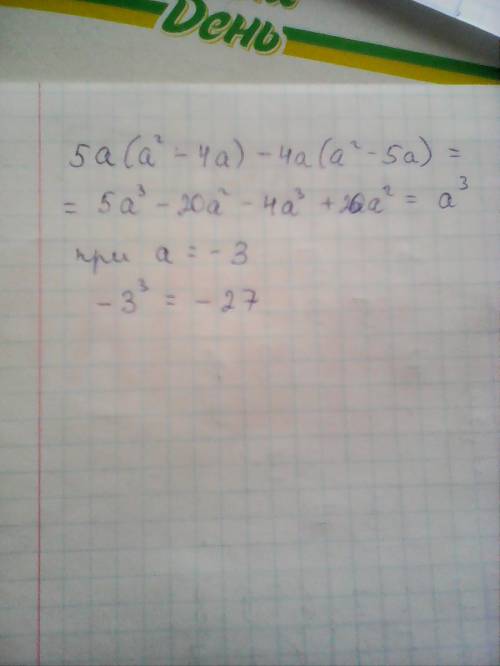 День
5a(a² - 4a) - 4a(a² - 5a) =
= 5a³ - 20a² - 4a³ + 20a² = a³
при a = -3
-3³ = -27